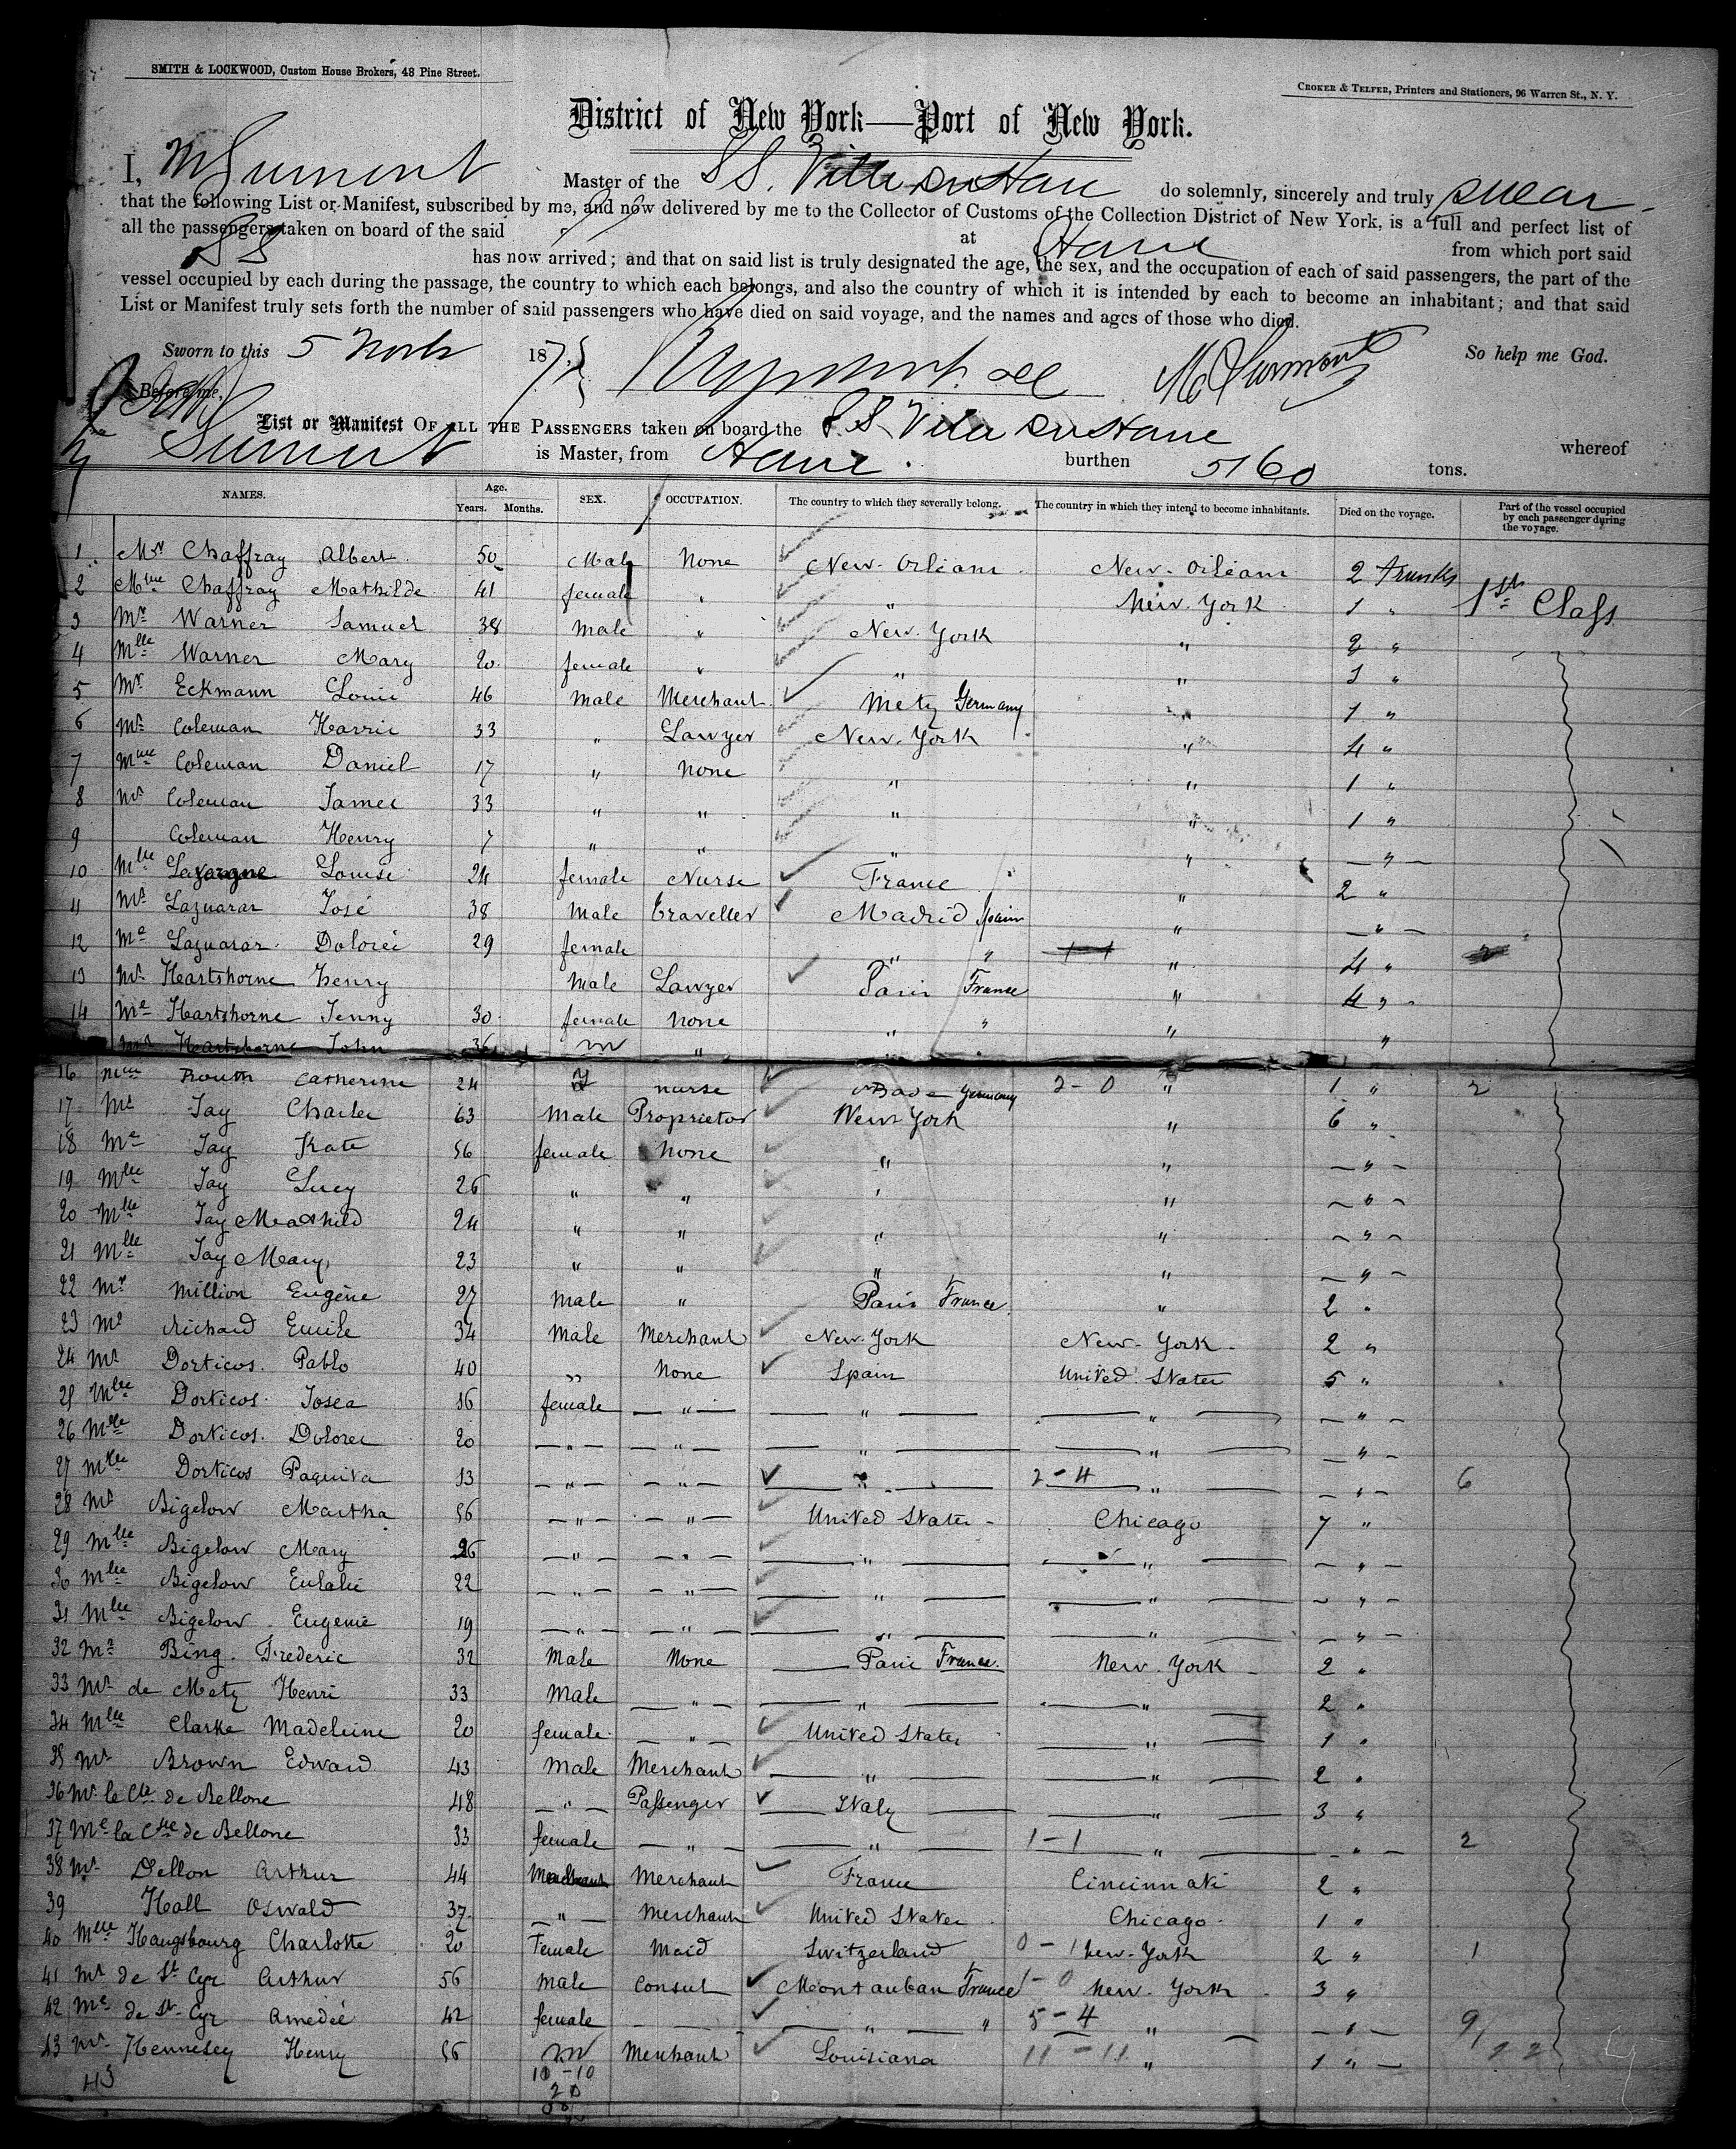 SMITH & LOCKWOOD, Custom House Brokers, 48 Pine Street.
CROKER & TELFER, Printers and Stationers, 96 Warren St., N. Y.
District of New York—Port of New York.
I, Master of the SS. Ville du Havre do solemnly, sincerely and truly swear
that the following List or Manifest, subscribed by me, and now delivered by me to the Collector of Customs of the Collection District of New York, is a full and perfect list of
all the passengers taken on board of the said SS at Havre from which port said
has now arrived; and that on said list is truly designated the age, the sex, and the occupation of each of said passengers, the part of the
vessel occupied by each during the passage, the country to which each belongs, and also the country of which it is intended by each to become an inhabitant; and that said
List or Manifest truly sets forth the number of said passengers who have died on said voyage, and the names and ages of those who died.
Sworn to this 5 Novb 187 So help me God.
Before me,
List or Manifest OF ALL THE PASSENGERS taken on board the SS Ville du Havre whereof
is Master, from Havre. burthen 5160 tons.
NAMES. Age. Years. Months. SEX. OCCUPATION. The country to which they severally belong. The country in which they intend to become inhabitants. Died on the voyage. Part of the vessel occupied by each passenger during the voyage.
1 Mr Chaffray Albert 50 Male None New-Orleans New-Orleans 2 trunks
2 Mme Chaffray Mathilde 41 female " " New-York 1 " 1st Class
3 Mr Warner Samuel 38 Male " New-York " 2 "
4 Mlle Warner Mary 20 female " " " 1 "
5 Mr Eckmann Louis 46 Male Merchant Metz Germany " 1 "
6 Mr Coleman Harris 33 " Lawyer New-York " 4 "
7 Mme Coleman Daniel 17 " None " " 1 "
8 Mr Coleman James 33 " " " " 1 "
9 Coleman Henry 7 " " " " — " —
10 Mlle Louise 24 female Nurse France " 2 "
11 Mr Lazuarar José 38 Male Traveller Madrid Spain " — " —
12 Me Lazuarar Dolorès 29 female " " " 4 "
13 Mr Heartshorne henry Male Lawyer Paris France " 4 "
14 Me Hartshorne Jenny 30 female None " " " "
Mr Heartshorne John 36 m "
16 Mme Catherine 24 f nurse Bade Germany 2-0 " 1 " 2
17 Mr Jay Charles 63 Male Proprietor New York " 6 "
18 Me Jay Kate 56 female None " " — " —
19 Mlle Jay Lucy 26 " " " " — " —
20 Mlle Jay Mathild 24 " " " " — " —
21 Mlle Jay Mary 23 " " " " — " —
22 Mr Million Eugène 27 Male " Paris France " 2 "
23 Mr Richard Emile 34 Male Merchant New-York New-York 2 "
24 Mr Dorticos. Pablo 40 " None Spain United States 5 "
25 Mlle Dorticos Josea 16 female — " — — " — — " — — " —
26 Mlle Dorticos. Dolores 20 — " — — " — — " — — " — — " —
27 Mlle Dorticos Paquita 13 — " — — " — — " — 2-4 " — — " — 6
28 Mr Bigelow Martha 56 — " — — " — United States Chicago 7 "
29 Mlle Bigelow Mary 26 — " — — " — — " — — " — — " —
30 Mlle Bigelow Eulalie 22 — " — — " — — " — — " — — " —
31 Mlle Bigelow Eugenie 19 — " — — " — — " — — " — — " —
32 Mr Bing. Frederic 32 Male None Paris France. New-York 2 "
33 Mr de Metz Henri 33 Male — " — — " — — " — 2 "
34 Mlle Clarke Madeleine 20 female — " — United States — " — 1 "
35 Mr Brown Edward 43 Male Merchant — " — — " — 2 "
36 Mr le Cte de Bellone 48 — " — Passenger Italy — " — 3 "
37 Me la Ctse de Bellone 33 female — " — — " — 1-1 " — — " — 2
38 Mr Dellon Arthur 44 Merchant France Cincinnati 2 "
39 Hall Oswald 37 — " — Merchant United States Chicago 1 "
40 Mlle Haugsbourg Charlotte 20 Female Maid Switzerland 0-1 New-York 2 " 1
41 Mr de St Cyr Arthur 56 Male Consul Montauban France 1-0 New-York 3 "
42 Me de St-Cyr Amedée 42 female — — " — " 5-4 " — — " — 9
43 Mr Hennesey Henry 56 m Merchant Louisiana 11-11 " 1 " — 22
43 10-10
20